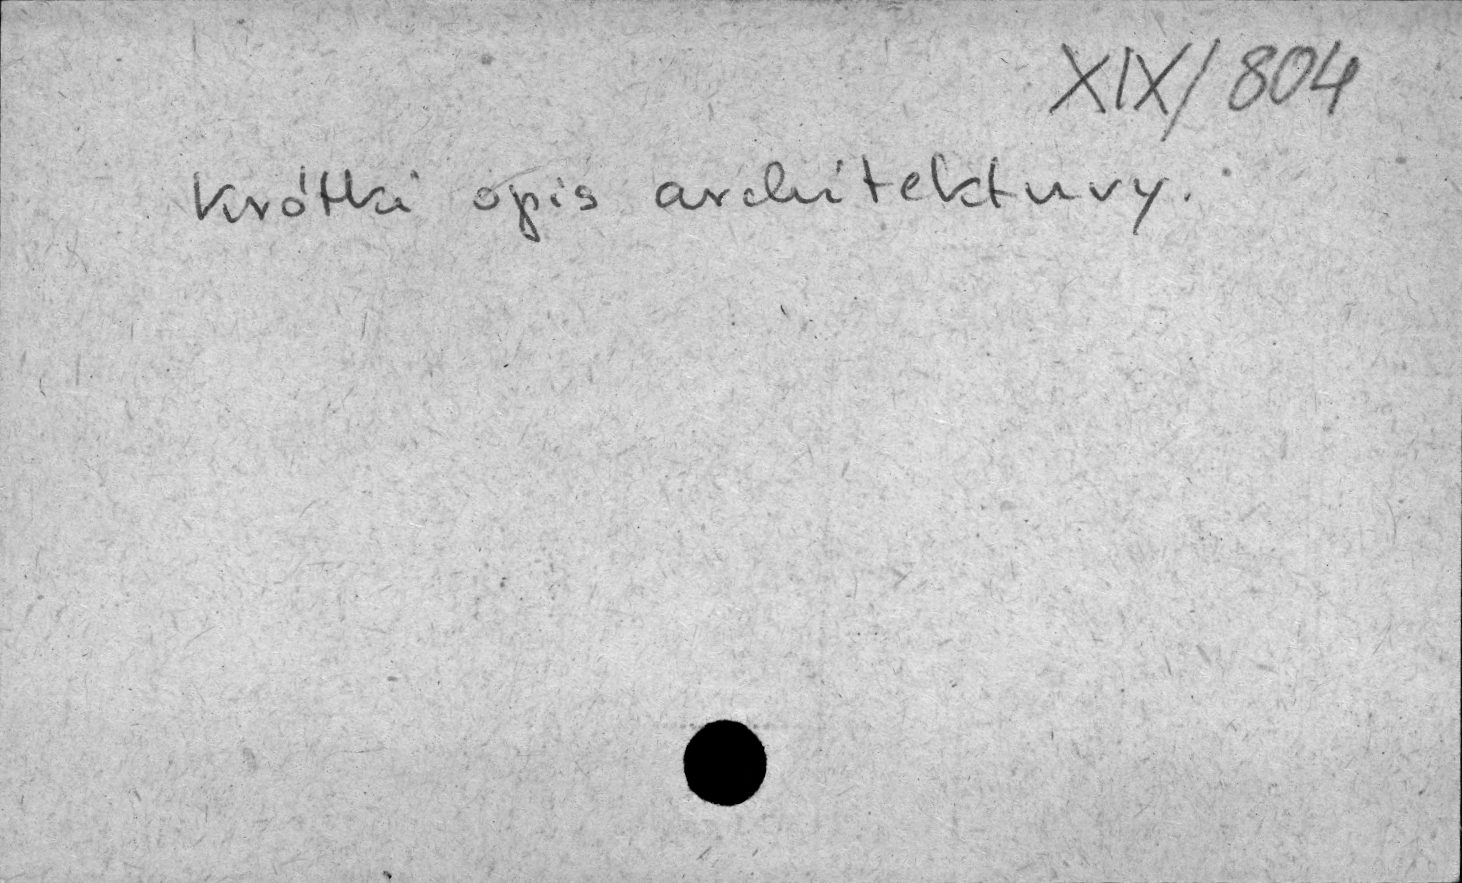 XIX/804
Krótki opis architektury.